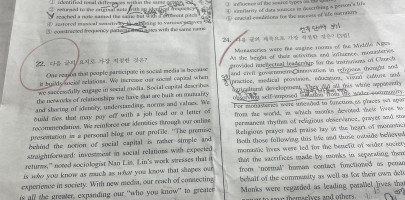 ① identified tonal differences within the same
② arranged to the original note with an identical frequency
③ reached a note named the same but with a different pitch
④ restored musical
⑤ constructed frequency patterns with the same name
22. 다음 글의 요지로 가장 적절한 것은?
One reason that people participate in social media is because
it builds social relations. We increase our social capital when
we successfully engage in social media. Social capital describes
the networks of relationships we have that are built on mutuality
and sharing of identity, understanding, norms and values. We
build ties that may pay off with a job lead or a letter of
recommendation. We reinforce our identities through our online
presentation in a personal blog or our profile. "The premise
behind the notion of social capital is rather simple and
straightforward: investment in social relations with expected
returns," noted sociologist Nan Lin. Lin's work stresses that it
is who you know as much as what you know that shapes our
experience in society. With new media, our reach of connecting
is all the greater, expanding our "who you know" to greater
① influence of the senses
② similarity of
③ crucial conditions for the success of life
24. 다음 글의 제목으로 가장 적절한 것은?
Monasteries were the engine rooms of the Middle Ages.
At the height of their activities and influence, monasteries
provided intellectual leadership for the institutions of Church
and civil government, innovation in religious thought and
practice, medical provision, education, visual culture and
agricultural development. They did all this while apparently
For monasteries were intended to function as places set apart
from the world, in which monks devoted their lives to
permanent rhythm of religious observance, prayer and
Religious prayer and praise lay at the heart of monastic
Both those following this life and those outside believed
monastic lives were led for the benefit of wider society
that the sacrifices made by monks in separating them
from 'normal' human contact functioned as penance
behalf of the community as well as for their own
Monks were regarded as leading parallel lives that
to save themselves and others.